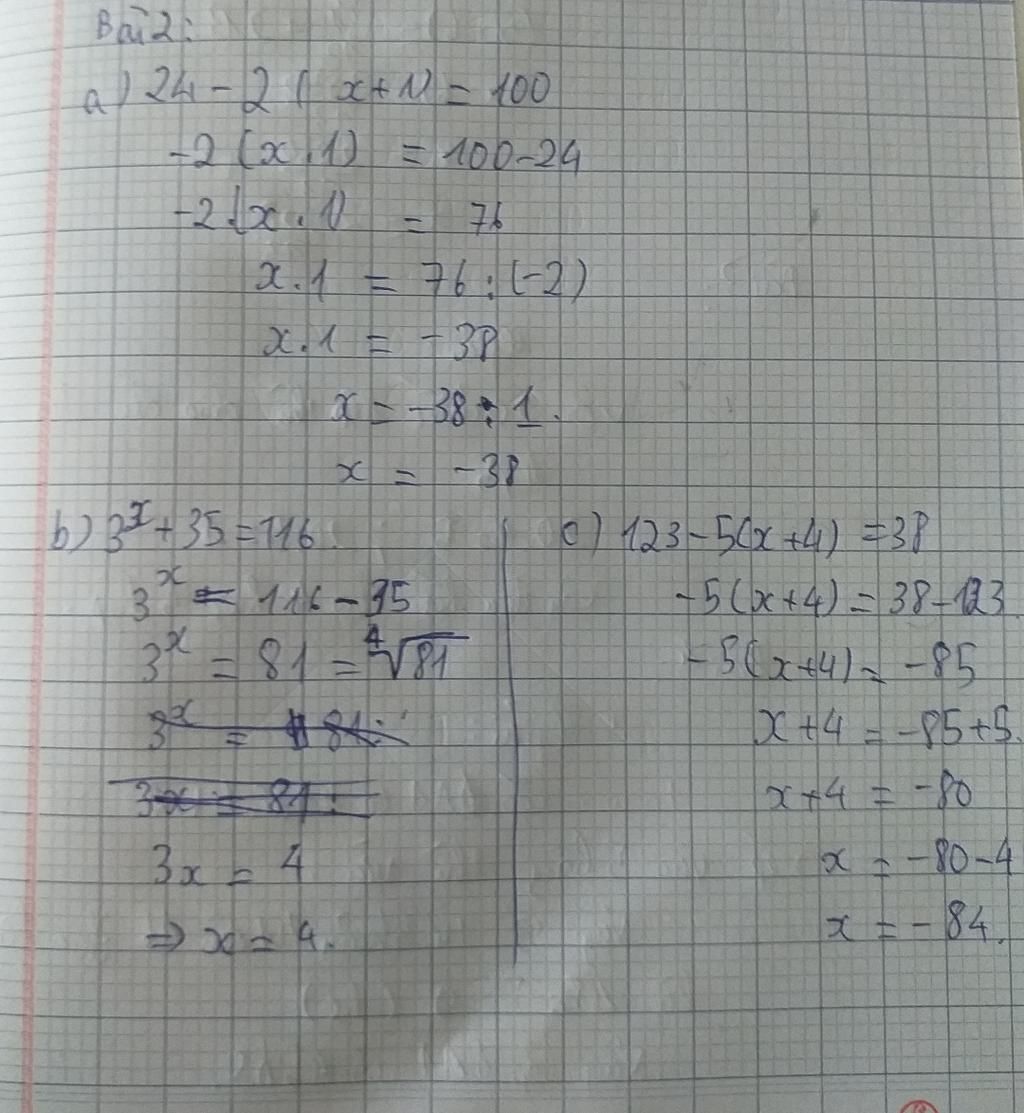 Bài 2:
a) 24 - 2 ( x + 1) = 100
-2 (x . 1) = 100 - 24
-2 (x . 1) = 76
x . 1 = 76 : (-2)
x . 1 = -38
x = -38 : 1.
x = -38
b) 3^x + 35 = 116
3^x = 116 - 35
3^x = 81 = ∜81
3^x = 81 :
3x = 81 :
3x = 4
⇒ x = 4.
c) 123 - 5(x + 4) = 38
-5(x + 4) = 38 - 123
-5(x + 4) = -85
x + 4 = -85 + 5.
x + 4 = -80
x = -80 - 4
x = -84.